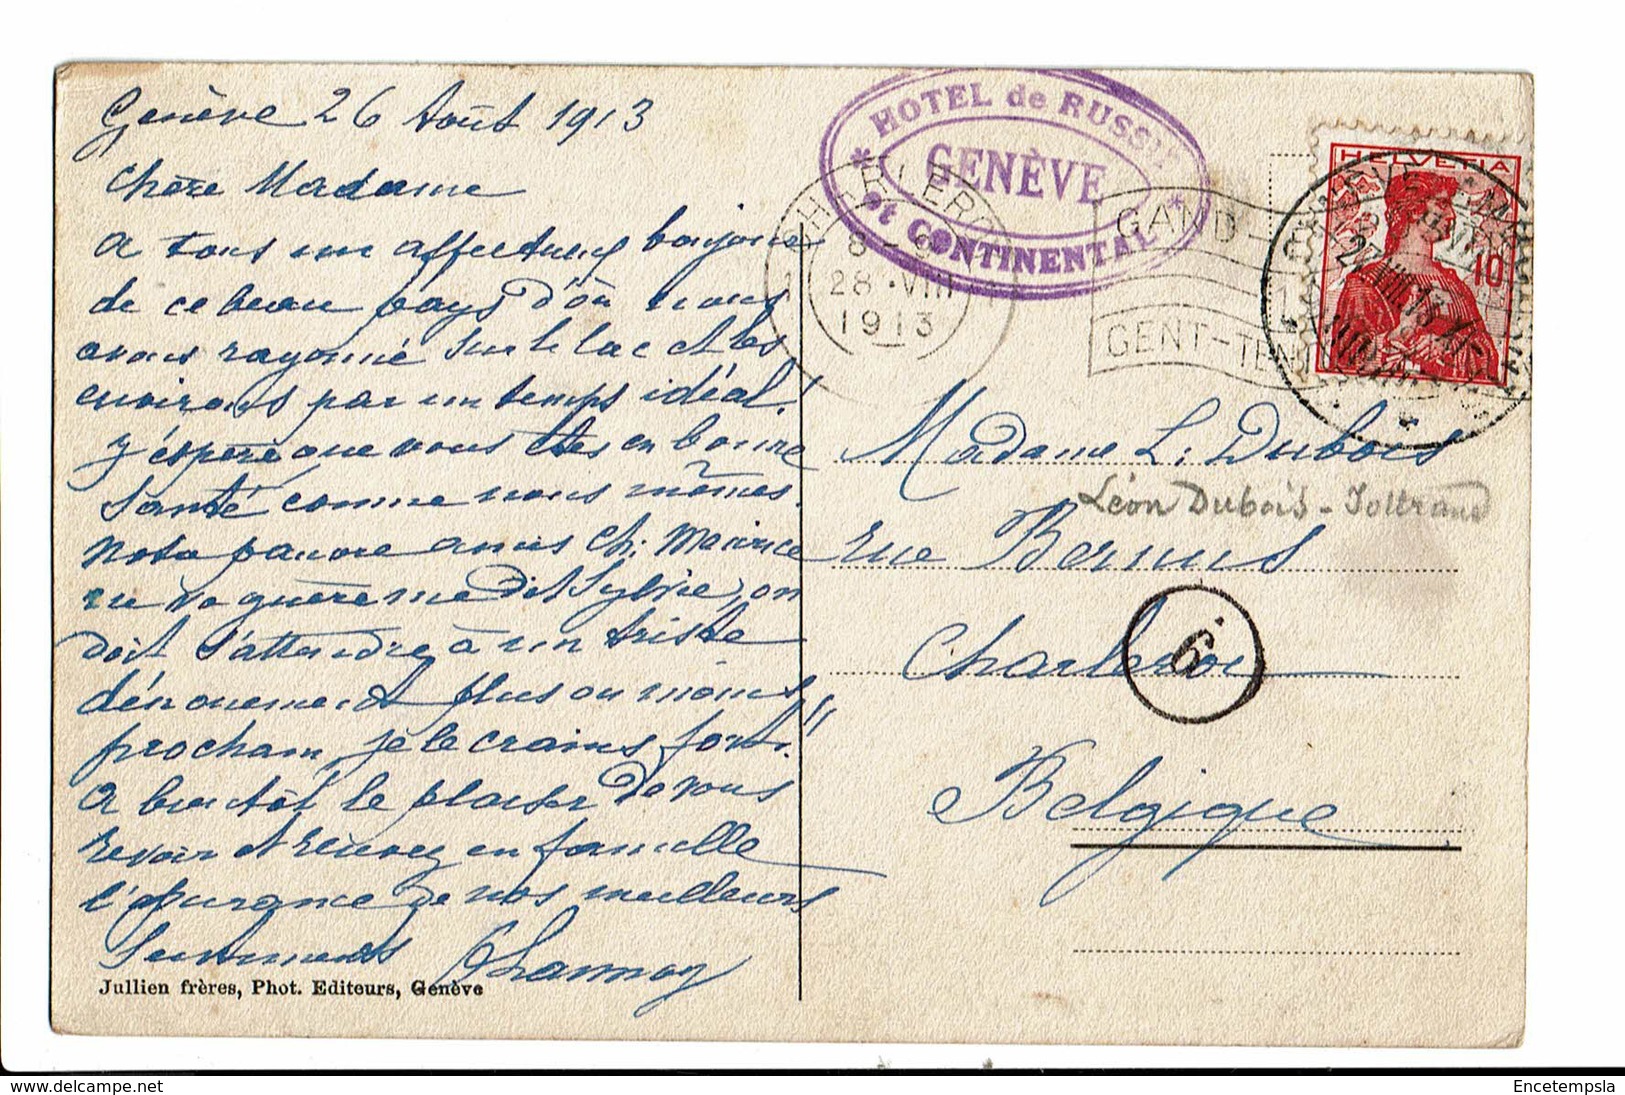 Genève 26 Août 1913
Chère Madame
A tous un affectueux bonjour
de ce beau pays d'où nous
avons rayonné sur le lac et les
environs par un temps idéal!
J'espère que vous êtes en bonne
santé comme nous mêmes.
Notre pauvre amis Ch. Maurice
ne va guère me dit Sylvie, on
doit s'attendre à un triste
dénouement plus ou moins
prochain, je le crains fort!!
A bientôt le plaisir de vous
revoir et recevez en famille
l'assurance de nos meilleurs
sentiments
Jullien frères, Phot. Editeurs, Genève
HOTEL de RUSSIE
GENÈVE
et CONTINENTAL
CHARLEROI
8 - 9
28 · VIII
1913
GAND-
GENT-TEN
HELVETIA
10
Madame L. Dubois
Léon Dubois-
rue Bernus
Charleroi
6
Belgique
Encetempsla